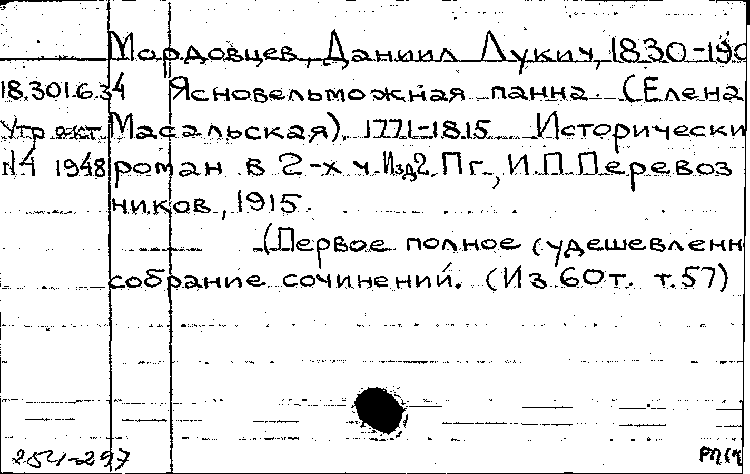 Мордовцев, Даниил Лукич, 1830-190
18.301.6.34 Ясновельможная панна. (Елена
Утр акт Масальская). 1771-1815 Исторически
N4 1948 роман в 2-х ч. Изд2. Пг., И.П.Перевоз
ников, 1915.
(Первое полное (удешевленн
собрание сочинений. (Из 60т. т.57)
254-297